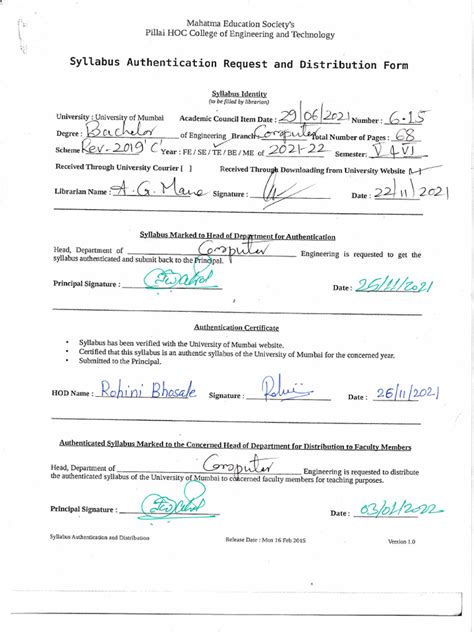 Mahatma Education Society's
Pillai HOC College of Engineering and Technology
Syllabus Authentication Request and Distribution Form
Syllabus Identity
(to be filled by librarian)
University : University of Mumbai Academic Council Item Date : 29/06/2021 Number : 6.15
Degree : Bachelor of Engineering Branch: Computer Total Number of Pages : 68
Scheme Rev-2019 'C' Year : FE / SE / TE / BE / ME of 2021-22 Semester: V & VI
Received Through University Courier [ ] Received Through Downloading from University Website
Librarian Name : A. G. Mane Signature : Date : 22/11/2021
Syllabus Marked to Head of Department for Authentication
Head, Department of Computer Engineering is requested to get the
syllabus authenticated and submit back to the Principal.
Principal Signature : Date : 25/11/2021
Authentication Certificate
• Syllabus has been verified with the University of Mumbai website.
• Certified that this syllabus is an authentic syllabus of the University of Mumbai for the concerned year.
• Submitted to the Principal.
HOD Name : Rohini Bhosale Signature : Rohini Date : 26/11/2021
Authenticated Syllabus Marked to the Concerned Head of Department for Distribution to Faculty Members
Head, Department of Computer Engineering is requested to distribute
the authenticated syllabus of the University of Mumbai to concerned faculty members for teaching purposes.
Principal Signature : Date : 03/01/2022
Syllabus Authentication and Distribution Release Date : Mon 16 Feb 2015 Version 1.0